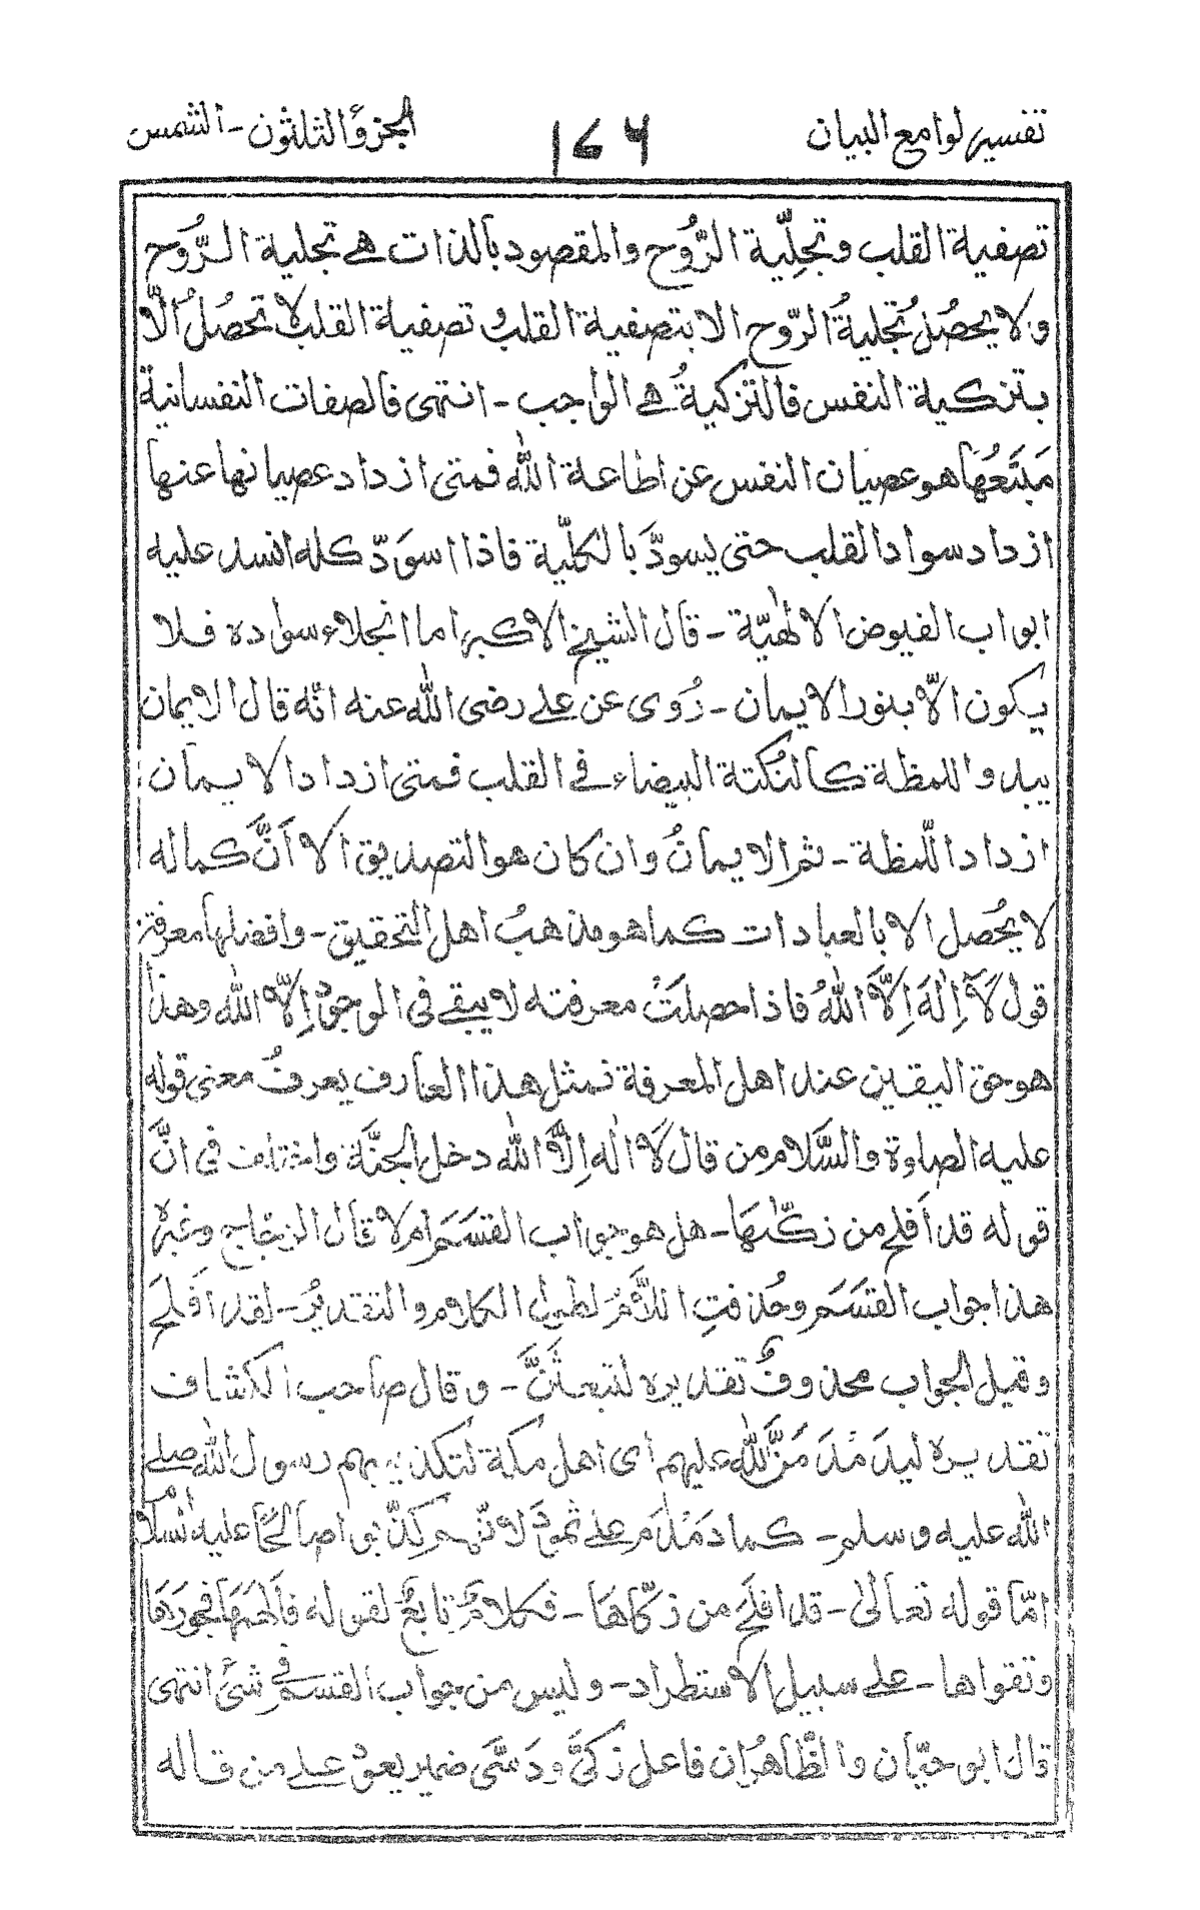 تفسير لوامع البيان ١٧٦ الجزؤ الثلثون - الشمس
تصفية القلب وتجلِّية الرُّوح والمقصود بالذات هے تجلية الرُّوح
ولا يحصُل تجليةُ الرّوح الا بتصفية القلب و تصفية القلب لا تحصُلُ الّا
بتزكية النفس فالتزكيةُ هے الواجب - انتهى فالصفات النفسانية
مَبتَعُها هو عصيان النفس عن اطاعة الله فمتى ازداد عصيانها عنها
ازداد سواد القلب حتى يسودَّ بالكلّية فاذا اسوَدّ كله انسد عليه
ابواب الفيوض الالٰهيّة - قال الشيخ الاكبر اما انجلاء سواده فلا
يكون الّا بنور الايمان - رُوى عن علے رضى الله عنه انّه قال الايمان
يبدو اللمظة كالنُكتة البيضاء فے القلب فمتى ازداد الايمان
ازداد اللّمظة - ثم الايمانُ وان كان هو التصديق الا اَنَّ كماله
لا يحُصل الا بالعبادات كما هو مذهبُ اهل التحقيق - وافضلها معرفة
قول لَا اِلٰهَ اِلَّا اللهُ فاذا حصلَتْ معرفته لا يبقے فى الوجود اِلّا الله وهذا
هو حق اليقين عند اهل المعرفة فمثل هذا العارف يعرفُ معنى قوله
عليه الصلوة والسَّلام من قال لَا اله اِلَّا الله دخل الجنَّة واختلف فى انَّ
قوله قد افلح من زكّٰىهَا - هل هو جواب القسَم ام لا قال الزجّاج وغيره
هذا جواب القسَم وحُذفتِ اللَّامُ لطول الكلام والتقديرُ - لقد افلحَ
وقيل الجواب محذوفٌ تقديره لتبعثُنَّ - وقال صاحب الكشاف
تقديره ليدَمْدِمَنَّ الله عليهم اى اهل مكة لتكذيبهم رسول الله صلے
الله عليه وسلم - كما دَمْدَمَ علے ثمودَ لانّهم كذّبوا صالحًا عليه السّلام
امّا قوله تعالىٰ - قد افلَحَ من زكّاهَا - فكلامٌ تابعٌ لقوله فاَلهمَهَا فجورَهَا
وتقواها - علے سبيل الاستطراد - وليس من جواب القسم فے شئ انتهى
قال ابو حيّان والظّاهرُ ان فاعل زكّىٰ ودَسّٰى ضمير يعود علے من قاله